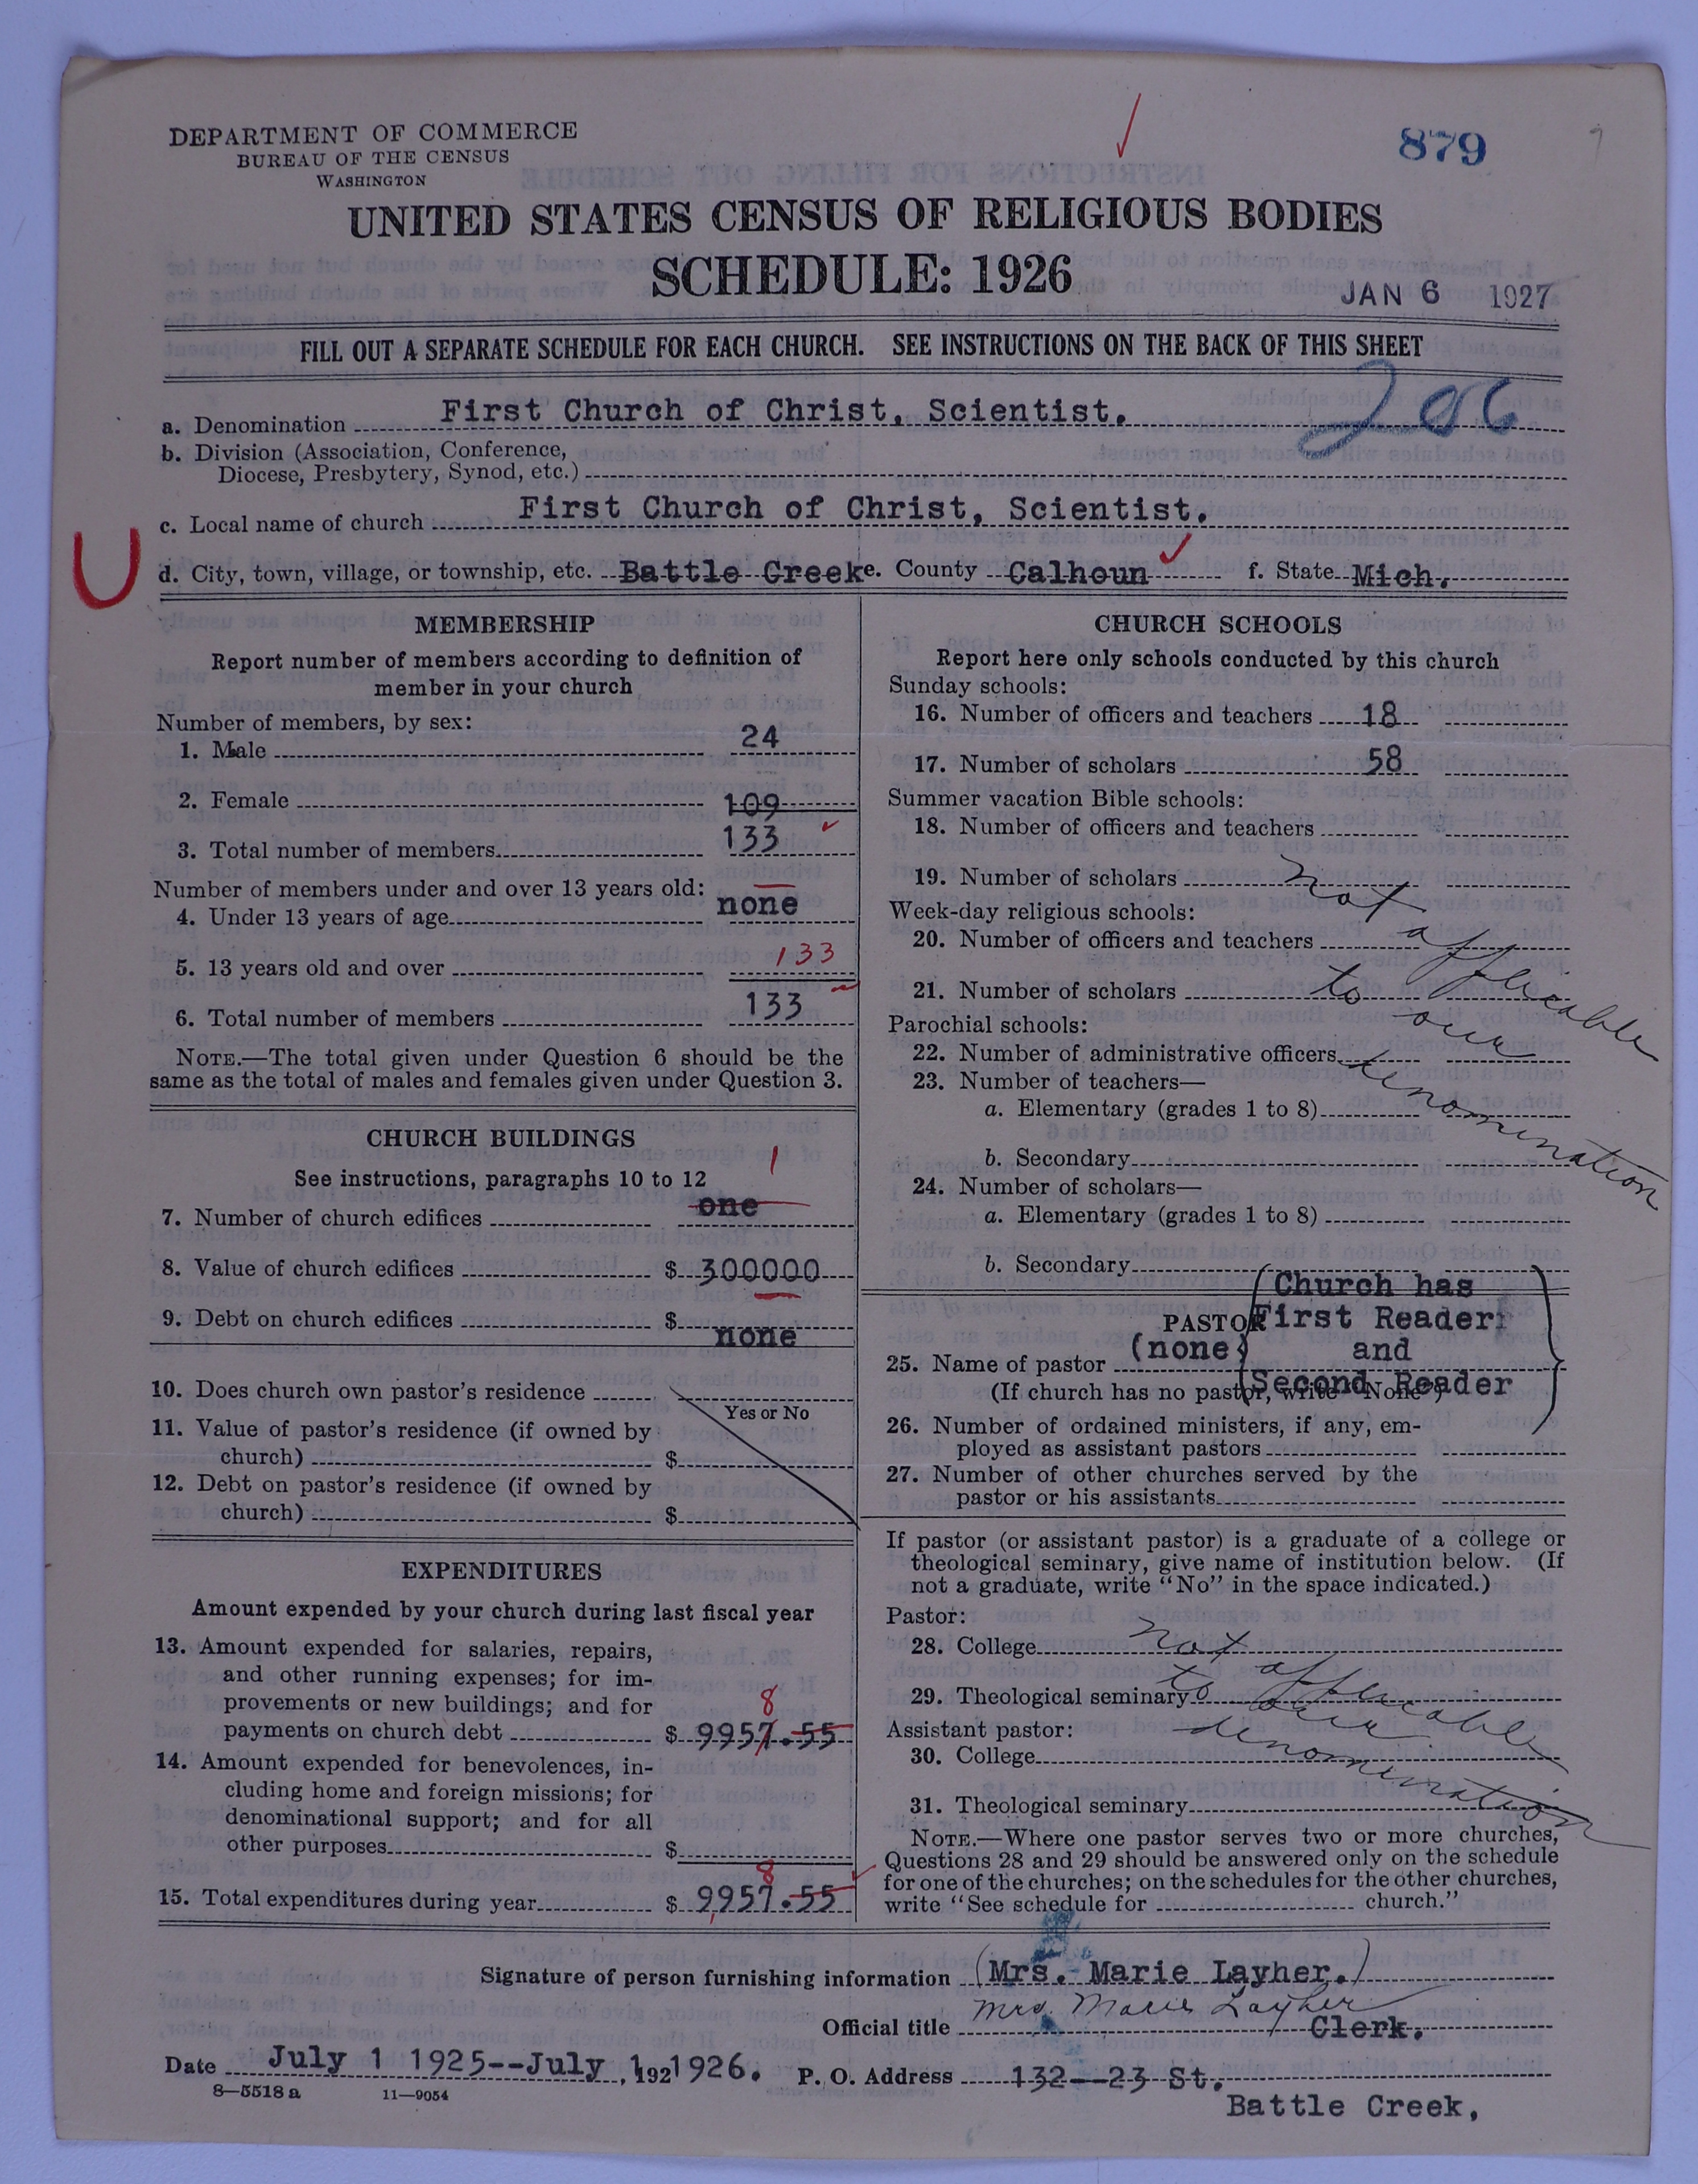 DEPARTMENT OF COMMERCE
BUREAU OF THE CENSUS
WASHINGTON
879
UNITED STATES CENSUS OF RELIGIOUS BODIES
SCHEDULE: 1926
JAN 6 1927
FILL OUT A SEPARATE SCHEDULE FOR EACH CHURCH. SEE INSTRUCTIONS ON THE BACK OF THIS SHEET
206
a. Denomination First Church of Christ, Scientist.
b. Division (Association, Conference,
Diocese, Presbytery, Synod, etc.)
c. Local name of church First Church of Christ, Scientist.
U
d. City, town, village, or township, etc. Battle Creek e. County Calhoun f. State Mich.
MEMBERSHIP
Report number of members according to definition of
member in your church
Number of members, by sex:
1. Male 24
2. Female 109
3. Total number of members 133
Number of members under and over 13 years old:
4. Under 13 years of age none
5. 13 years old and over 133
6. Total number of members 133
NOTE.—The total given under Question 6 should be the
same as the total of males and females given under Question 3.
CHURCH BUILDINGS
See instructions, paragraphs 10 to 12
1
7. Number of church edifices one
8. Value of church edifices $ 300000
9. Debt on church edifices $ none
10. Does church own pastor's residence
Yes or No
11. Value of pastor's residence (if owned by
church) $
12. Debt on pastor's residence (if owned by
church) $
EXPENDITURES
Amount expended by your church during last fiscal year
13. Amount expended for salaries, repairs,
and other running expenses; for im-
provements or new buildings; and for
8
payments on church debt $ 9957.55
14. Amount expended for benevolences, in-
cluding home and foreign missions; for
denominational support; and for all
other purposes $
8
15. Total expenditures during year $ 9957.55
CHURCH SCHOOLS
Report here only schools conducted by this church
Sunday schools:
16. Number of officers and teachers 18
17. Number of scholars 58
Summer vacation Bible schools:
18. Number of officers and teachers
19. Number of scholars not
Week-day religious schools:
20. Number of officers and teachers applicable
21. Number of scholars to
our
Parochial schools:
22. Number of administrative officers denomination
23. Number of teachers—
a. Elementary (grades 1 to 8)
b. Secondary
24. Number of scholars—
a. Elementary (grades 1 to 8)
b. Secondary
(Church has
PASTOR First Reader
25. Name of pastor (none) and
(If church has no pastor, write "None") Second Reader
26. Number of ordained ministers, if any, em-
ployed as assistant pastors
27. Number of other churches served by the
pastor or his assistants
If pastor (or assistant pastor) is a graduate of a college or
theological seminary, give name of institution below. (If
not a graduate, write "No" in the space indicated.)
Pastor:
28. College not applicable
29. Theological seminary to our
Assistant pastor: denomination
30. College
31. Theological seminary
NOTE.—Where one pastor serves two or more churches,
Questions 28 and 29 should be answered only on the schedule
for one of the churches; on the schedules for the other churches,
write "See schedule for church."
Signature of person furnishing information (Mrs. Marie Layher.)
Mrs. Marie Layher
Official title Clerk.
Date July 1 1925--July 1, 1921926. P. O. Address 132--23 St.
8—5518 a 11—9054
Battle Creek,